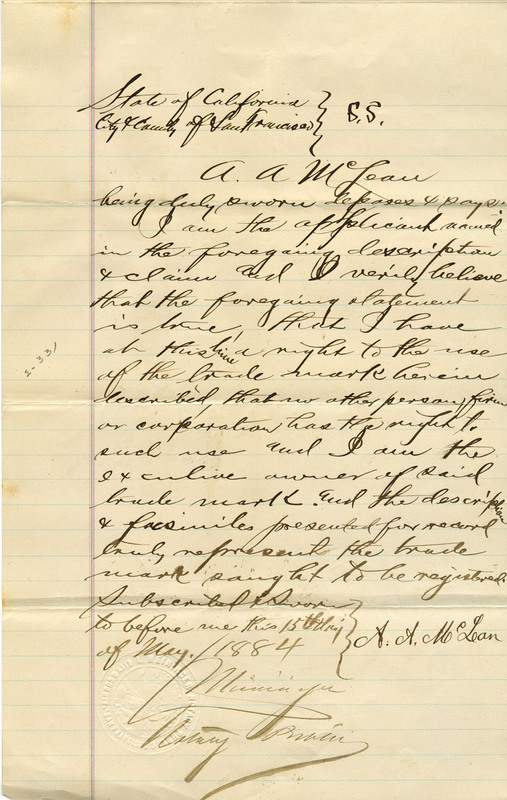 State of California }
City & County of San Francisco } S.S.
A. A McLean
being duly sworn deposes & says.
I am the applicant named
in the foregoing description
& claim and I verily believe
that the foregoing statement
is true, that I have
at this time a right to the use
of the trade mark herein
described, that no other person, firm
or corporation has the right to
such use and I am the
exculive owner of said
trade mark. and the description
& facsimiles presented for record
truly represent the trade
mark sought to be registered.
Subscribed & Sworn
to before me this 15th day
of May, 1884
A. A. McLean
Notary Public
2-331